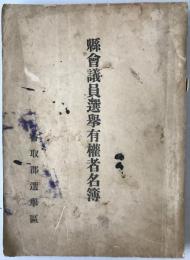 縣會議員選擧有權者名簿
取郡選擧區